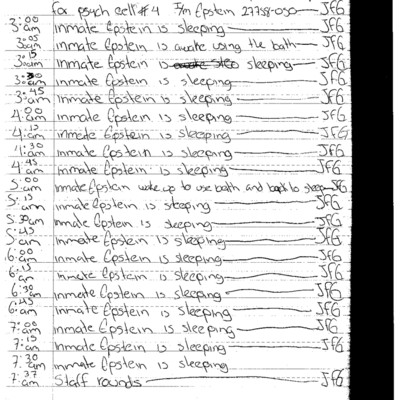 for psych cell #4 I/m Epstein JFG
3:00 am inmate Epstein is sleeping JFG
3:05 am inmate Epstein is awake using the bath JFG
3:15 am inmate Epstein is sleeping JFG
3:30 am inmate Epstein is sleeping JFG
3:45 am inmate Epstein is sleeping JFG
4:00 am inmate Epstein is sleeping JFG
4:15 am inmate Epstein is sleeping JFG
4:30 am inmate Epstein is sleeping JFG
4:45 am inmate Epstein is sleeping JFG
5:00 am inmate Epstein woke up to use bath and back to sleep JFG
5:15 am inmate Epstein is sleeping JFG
5:30am inmate Epstein is sleeping JFG
5:45 am inmate Epstein is sleeping JFG
6:00 am inmate Epstein is sleeping JFG
6:15 am inmate Epstein is sleeping JFG
6:30 am inmate Epstein is sleeping JFG
6:45 am inmate Epstein is sleeping JFG
7:00 am inmate Epstein is sleeping JFG
7:15 am inmate Epstein is sleeping JFG
7:30 am inmate Epstein is sleeping
7:37 am Staff rounds JFG